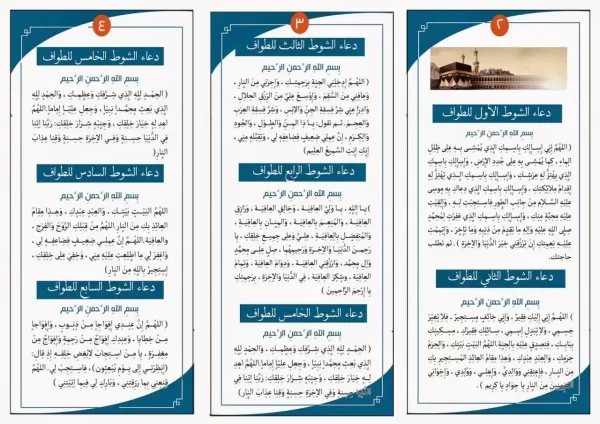 ٢
دعاء الشوط الأول للطواف
بسم الله الرحمن الرحيم
( اللهُمَّ إني أسألك باسمك الذي يُمشى به على طلل
الماء، كما يُمشى به على جدد الأرض، وأسألك باسمك
الذي يهتزُّ له عرشك، وأسألك باسمك الذي يهتزُّ له
أقدام ملائكتك، وأسألك باسمك الذي دعاك به موسى
عليه السلام من جانب الطور فاستجبت له، وألقيت
عليه محبَّة منك، وأسألك باسمك الذي غفرت لمحمد
صلى الله عليه وآله ما تقدم من ذنبه وما تأخر، وأتممت
عليه نعمتك أن ترزقني خير الدنيا والآخرة ) . ثم تطلب
حاجتك.
دعاء الشوط الثاني للطواف
بسم الله الرحمن الرحيم
( اللهُمَّ إني إليك فقير، وإني خائف مستجير، فلا تغيّر
جسمي، ولا تبدل اسمي، سائلك فقيرك، مسكينك
ببابك، فتصدق عليه بالجنة اللهُمَّ البيت بيتك، والحرم
حرمك، والعبد عبدك، وهذا مقام العائذ المستجير بك
من النار، فأعتقني ووالديَّ، وأهلي، وولدي، وإخواني
من النار يا جواد يا كريم ).
٣
دعاء الشوط الثالث للطواف
بسم الله الرحمن الرحيم
( اللهُمَّ أدخلني الجنة برحمتك، وأجرني من النار،
وعافني من السقم، وأوسع عليَّ من الرزق الحلال،
وادرأ عني شر فسقة الجن والإنس، وشر فسقة العرب
والعجم. ثم تقول: يا ذا المنِّ والطول، والجود
والكرم، إنَّ عملي ضعيف فضاعفه لي، وتقبَّله مني،
إنك أنت السميع العليم)
دعاء الشوط الرابع للطواف
بسم الله الرحمن الرحيم
(يا الله، يا وليَّ العافية، وخالق العافية، ورازق
العافية، والمنعم بالعافية، والمنان بالعافية،
والمتفضل بالعافية، عليَّ وعلى جميع خلقك، يا
رحمن الدنيا والآخرة ورحيمهما، صل على محمد
وآل محمد، وارزقني العافية، ودوام العافية، وتمام
العافية، وشكر العافية، في الدنيا والآخرة، برحمتك
يا أرحم الراحمين )
دعاء الشوط الخامس للطواف
بسم الله الرحمن الرحيم
( الحمد لله الذي شرَّفك وعظَّمك، والحمد لله
الذي بعث محمداً نبياً، وجعل علياً إماماً.اللهُمَّ اهد
له خيار خلقك، وجنّبه شرار خلقك؛ ربنا آتنا في
حسنة وفي الآخرة حسنة وقنا عذاب النار)
٤
دعاء الشوط الخامس للطواف
بسم الله الرحمن الرحيم
( الحمد لله الذي شرَّفك وعظَّمك، والحمد لله
الذي بعث محمداً نبياً، وجعل علياً إماماً.اللهُمَّ
اهد له خيار خلقك، وجنّبه شرار خلقك؛ ربنا آتنا
في الدنيا حسنة وفي الآخرة حسنة وقنا عذاب
النار)
دعاء الشوط السادس للطواف
بسم الله الرحمن الرحيم
اللهُمَّ البيت بيتك، والعبد عبدك، وهذا مقام
العائذ بك من النار.اللهُمَّ من قبلك الرَّوح والفرج،
والعافية.اللهُمَّ إنَّ عملي ضعيف فضاعفه لي،
واغفر لي ما اطلعت عليه مني، وخفي على خلقك،
أستجير بالله من النار)
دعاء الشوط السابع للطواف
بسم الله الرحمن الرحيم
( اللهُمَّ إنَّ عندي أفواجاً من ذنوب، وأفواجاً
من خطايا، وعندك أفواج من رحمة وأفواج من
مغفرة، يا من استجاب لأبغض خلقه إذ قال:
(أنظرني إلى يوم يُبعثون)، فاستجب لي. اللهُمَّ
قنعني بما رزقتني، وبارك لي فيما آتيتني )